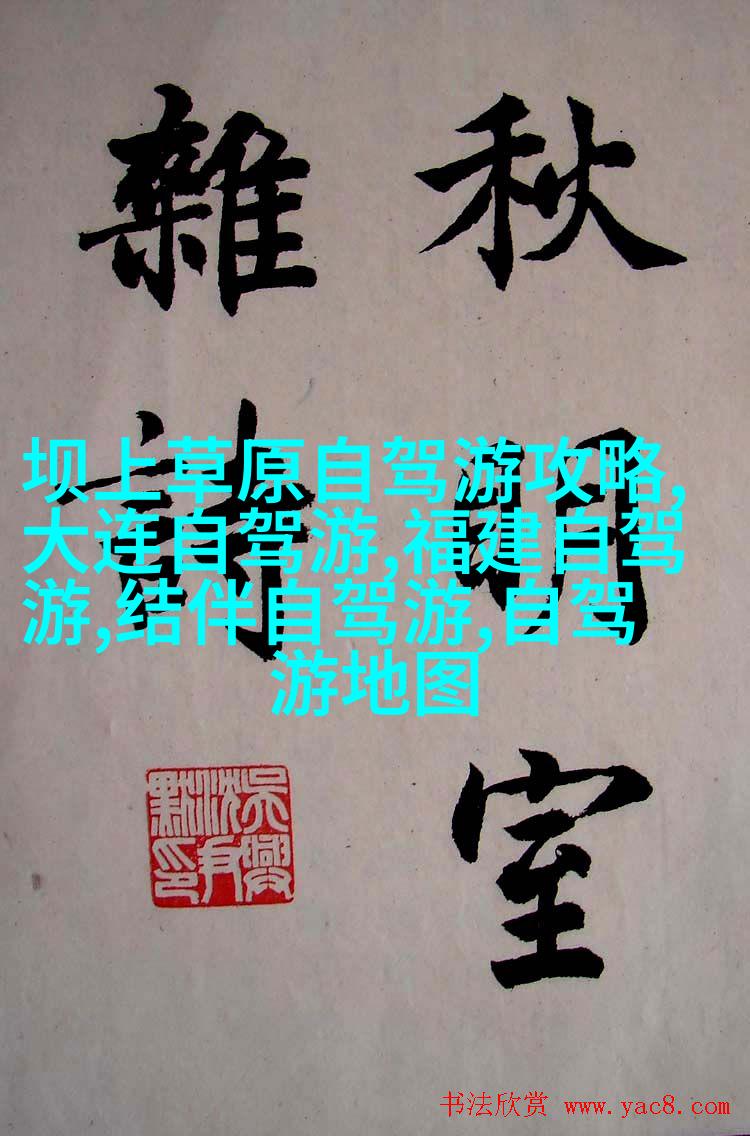 秋明室
雜詩
坝上草原自驾游攻略,
大连自驾游,福建自驾
游,结伴自驾游,自驾
游地图
吴興沈尹默印
书法欣赏 www.yac8.com